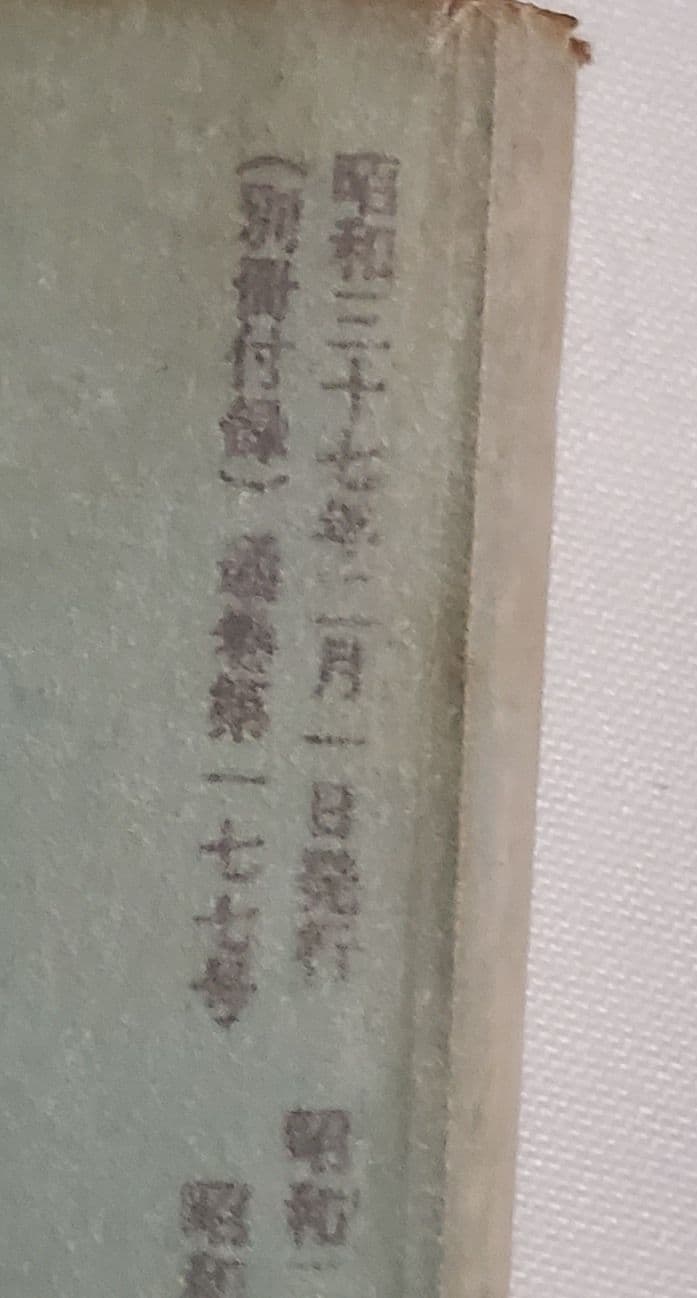 昭和三十七年二月一日発行
(別冊付録) 第一七七号
昭和
昭和